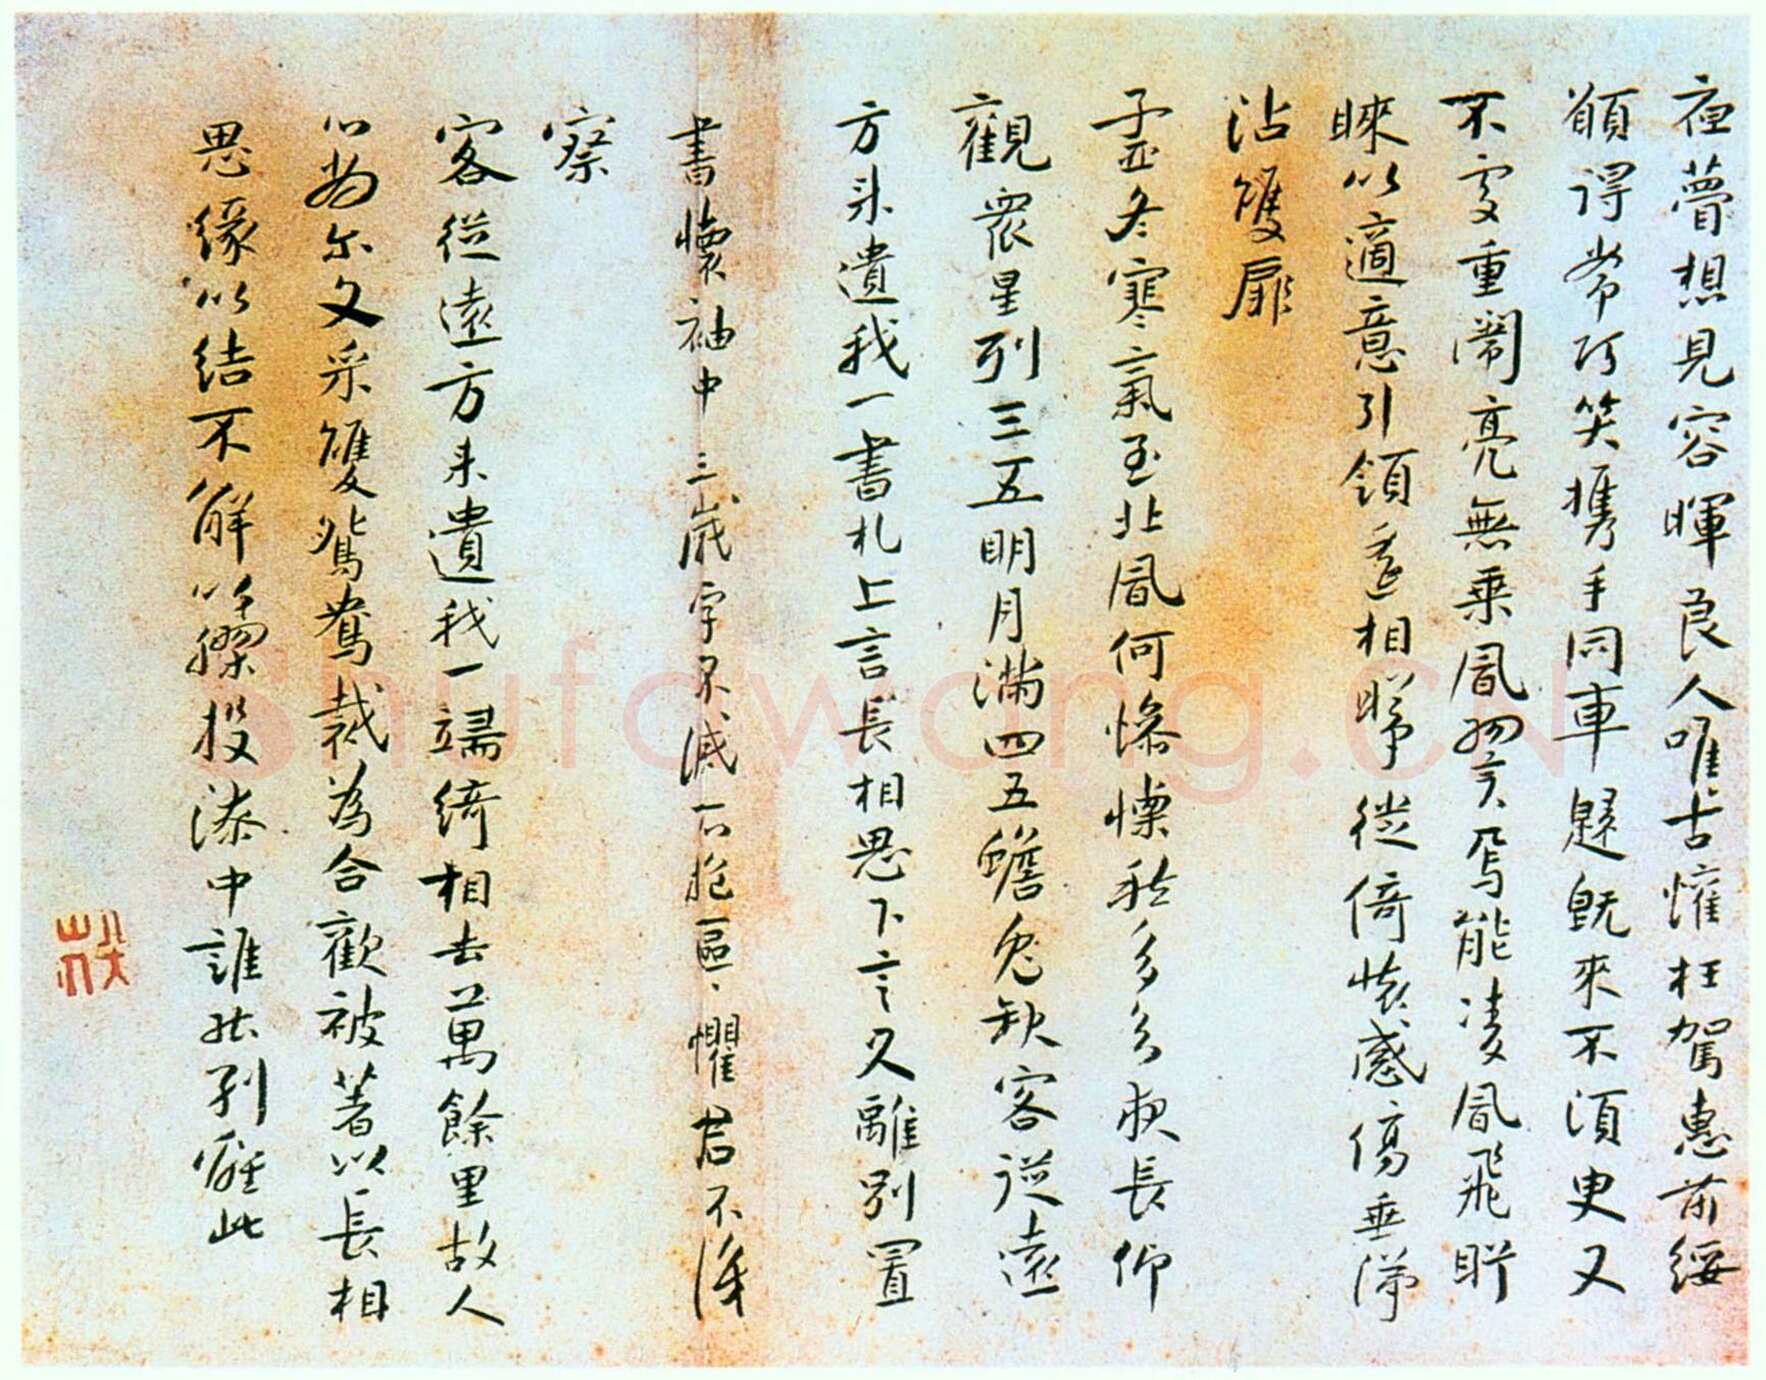 夜夢想見容暉良人唯古懽枉駕惠前綏
願得常巧笑攜手同車歸既來不須臾又
不處重闈亮無晨風翼焉能淩風飛眄
睞以適意引領遙相睎徙倚懷感傷垂涕
沾雙扉
孟冬寒氣至北風何慘慄愁多知夜長仰
觀衆星列三五明月滿四五蟾兔缺客從遠
方来遺我一書札上言長相思下言久離別置
書懷袖中三歲字不滅一心抱區〻懼君不識
察
客從遠方来遺我一端綺相去萬餘里故人
心尚尔文采雙鴛鴦裁為合歡被著以長相
思緣以結不解以膠投漆中誰能別離此
八大山人
Shufawang.CN